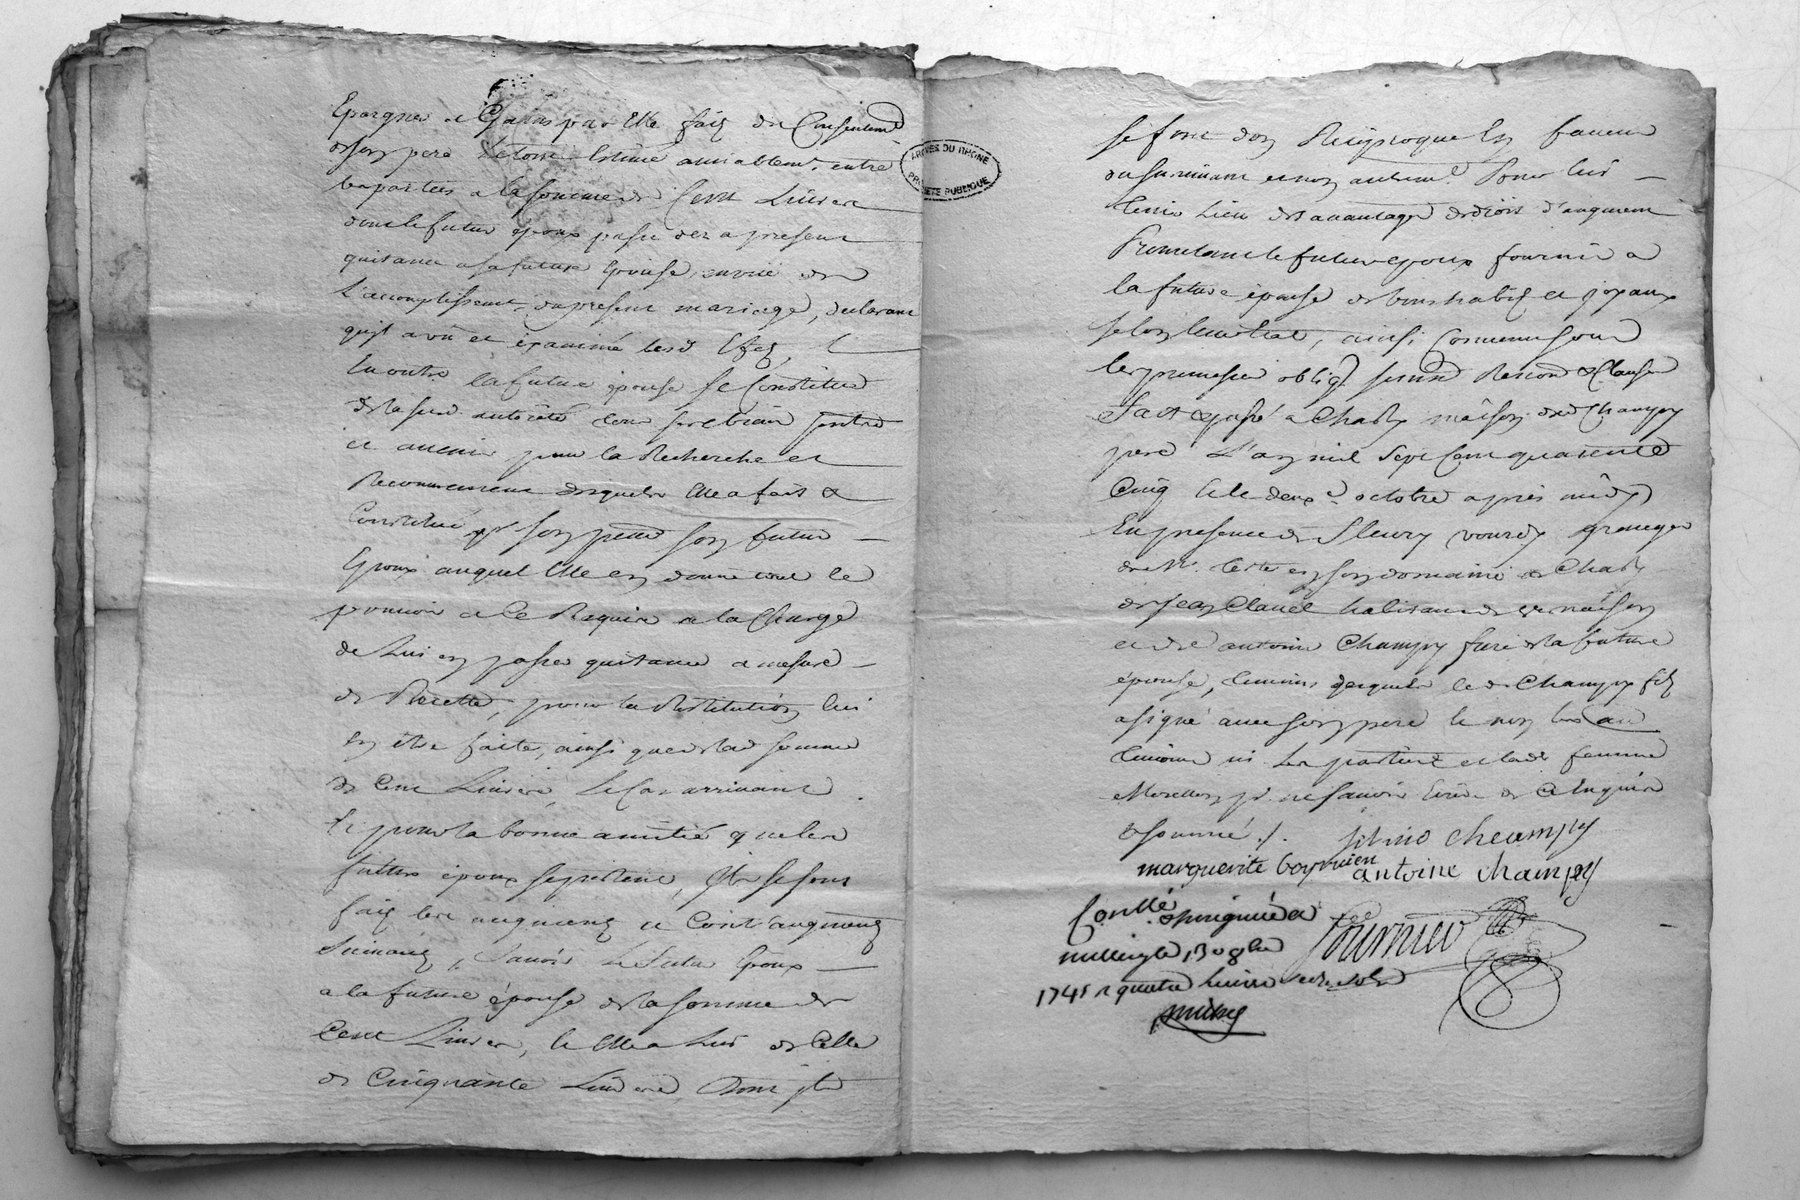 Epargnes et Gains par Elle fais du Consentemt
de son pere Le tout Estimé amiablemt. entre
les parties a la somme de Cent Livres
dont le futur epoux passe des a present
quitance a sa future Epouse, en vüe de
L'accomplissemt du present mariage, declarant
qu'il a vû et examiné lesd Effez,
En outre la future épouse se Constitue
de lad autorité tous ses biens presents
et avenir pour la Recherche et
Recouvrement desquels Elle a fait et
Constitué pr son preur son futur
Epoux auquel Elle en donne tout le
pouvoir a Ce Requis a la Charge
de Lui en passer quitance a mesure
de Recette, pour la Restitution lui
En être faite, ainsi que de lad somme
de Cent Livres, Le Cas arrivant
Et pour la bonne amitié que les
futurs époux se portent, Ils se sont
fais les augments et Contraugments
Suivants, Savoir Le futur Epoux
a la future épouse de la somme de
Cent Livres, Et Elle a Lui de Celle
de Cinquante Livres Dont ils
ARCHIVES DU RHONE
PROPRIETE PUBLIQUE
se font don Reciproque En faveur
du survivant et non autremt. Pour lui
tenir Lieu des avantages de droit d'augment
Promettant le futur epoux fournir a
la future épouse de bons habis et joyaux
selon leur Etat, ainsi Convenu sous
les promesses oblig. soumis Renonc & Clauses
Fait et passé a Charly maison dud Champy
pere L'an mil Sept Cent quarente
Cinq Et le deuxe octobre après midy
En presence de Fleury vourdy granger
de Mr. en son domaine de Charly
de Jean Claude habitant de
et de antoine Champy frere de la future
épouse, temoins desquels led Champy fils
a signé avec son pere le non
temoins ni Les parties et lad femme
pr. ne savoir Ecrire de Ce Enquis
& sommé ./. Champy
marguerite antoine champy
Conllé a
millery le 13 8bre Fournier
1745 R quatre livres